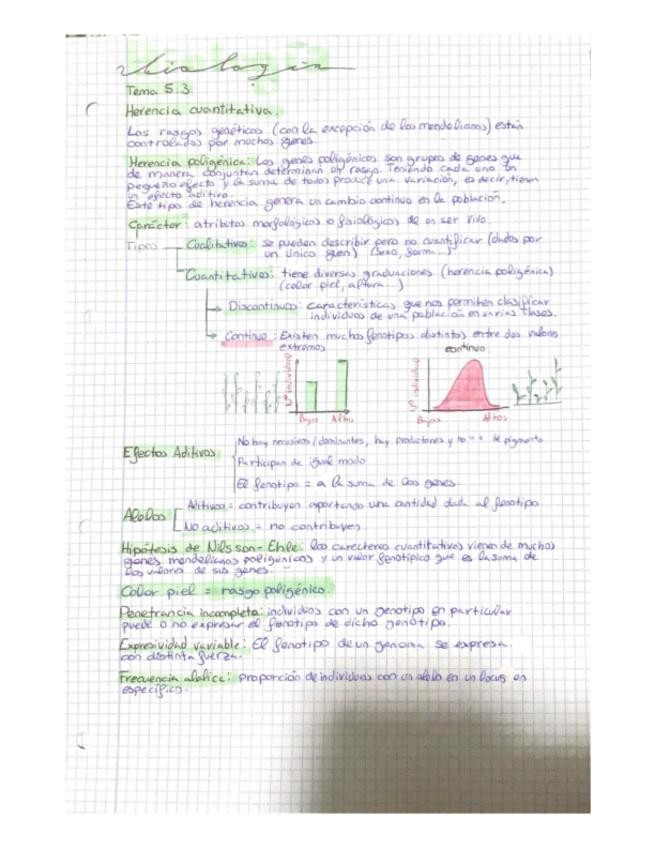 Biología
Tema 5.3
Herencia cuantitativa.
Los rasgos genéticos (con la excepción de los mendelianos) están
controlados por muchos genes.
Herencia poligénica: Los genes poligénicos son grupos de genes que
de manera conjunta determinan un rasgo. Teniendo cada uno un
pequeño efecto y la suma de todos produce una variación, es decir, tienen
un efecto aditivo.
Este tipo de herencia genera un cambio continuo en la población.
Carácter: atributos morfológicos o fisiológicos de un ser vivo.
Tipos Cualitativos: se pueden describir pero no cuantificar (dados por
un único gen) (sexo, forma...)
Cuantitativos: tiene diversas graduaciones (herencia poligénica)
(color piel, altura...)
Discontinuo: características que nos permiten clasificar
individuos de una población en varias clases.
Continuo: Existen muchos fenotipos distintos entre dos valores
extremos
continuo
Nº individuos
Bajos Altos
Nº individuos
Bajos Altos
No hay recesivos/dominantes, hay productores y no " " de pigmento
Efectos Aditivos
Participan de igual modo
El fenotipo = a la suma de los genes.
Aditivos = contribuyen aportando una cantidad dada al fenotipo
Alelos
No aditivos = no contribuyen
Hipótesis de Nilsson-Ehle: los carecteres cuantitativos vienen de muchos
genes mendelianos poligénicos y un valor fenotípico que es la suma de
los valores de sus genes.
Color piel = rasgo poligénico.
Penetrancia incompleta: individuos con un genotipo en particular
puede o no expresar el fenotipo de dicho genotipo.
Expresividad variable: El fenotipo de un genoma se expresa
con distinta fuerza.
Frecuencia alelica: proporción de individuos con un alelo en un locus en
específico.